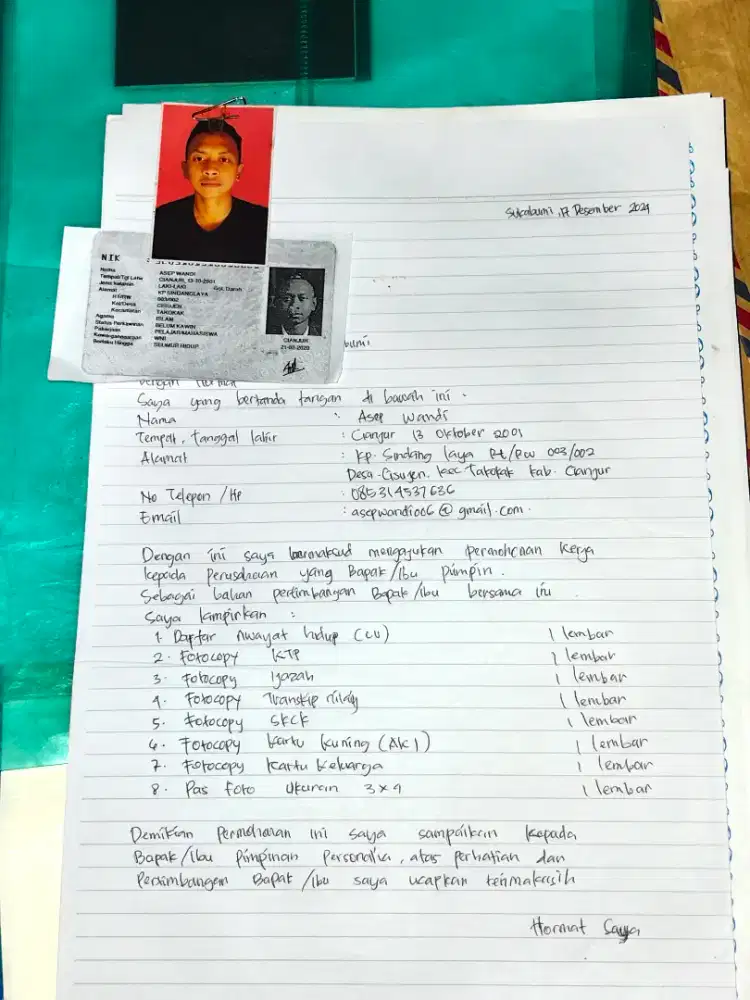 Sukabumi, 17 Desember 2024
NIK
Nama ASEP WANDI
Tempat/Tgl Lahir CIANJUR, 13-10-2001
Jenis kelamin LAKI-LAKI Gol. Darah
Alamat KP SINDANGLAYA
RT/RW 003/002
Kel/Desa CISUJEN
Kecamatan TAKOKAK
Agama ISLAM
Status Perkawinan BELUM KAWIN
Pekerjaan PELAJAR/MAHASISWA
Kewarganegaraan WNI
Berlaku Hingga SEUMUR HIDUP
CIANJUR
21-02-2020
bumi
Dengan Hormat
Saya yang bertanda tangan di bawah ini :
Nama : Asep Wandi
Tempat, tanggal lahir : Cianjur 13 Oktober 2001
Alamat : Kp. Sindang laya Rt/Rw 003/002
Desa. Cisujen. kec Takokak kab. Cianjur
No Telepon /Hp : 085314537636
Email : asepwandi006@gmail.com.
Dengan ini saya bermaksud mengajukan permohonan kerja
kepada perusahaan yang Bapak/Ibu pimpin.
Sebagai bahan pertimbangan Bapak/Ibu bersama ini
Saya lampirkan :
1. Daftar riwayat hidup (CV) 1 lembar
2. Fotocopy KTP 1 lembar
3. Fotocopy Ijazah 1 lembar
4. Fotocopy Transkip nilay 1 lembar
5. Fotocopy SKCK 1 lembar
6. Fotocopy kartu kuning (AK1) 1 lembar
7. Fotocopy kartu keluarga 1 lembar
8. Pas foto Ukuran 3x4 1 lembar
Demikian Permohonan ini saya sampaikan kepada
Bapak/Ibu Pimpinan Personalia, atas perhatian dan
Pertimbangan Bapak /Ibu saya ucapkan terimakasih
Hormat Saya